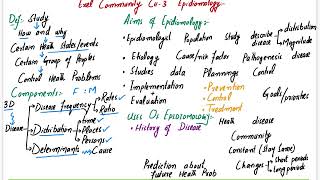 Exal Community Ch-3 Epidemology:-
Def:- Study
How and why
Certain Health States/events
Certain Group of Peoples
Control Health Problems
Components:- F : M
3D
Disease
Disease frequency
Rates
Ratio
Distribution
time
Places
Persons
Determinants
Cause
Aims of Epidomology:-
Epidomologist Population Study describe disease
distribution
Magnitude
Etiology Cause/risk factor Pathogenesis disease
Studies data Plannings Control
Implementation
Evaluation
Prevention
Control
Treatment
Goals/priorities
Uses Of Epidomology:-
History of Disease
Health disease
Community
Constant (Stay Same)
Changes
Short periods
long periods
Prediction about
future Health Prob